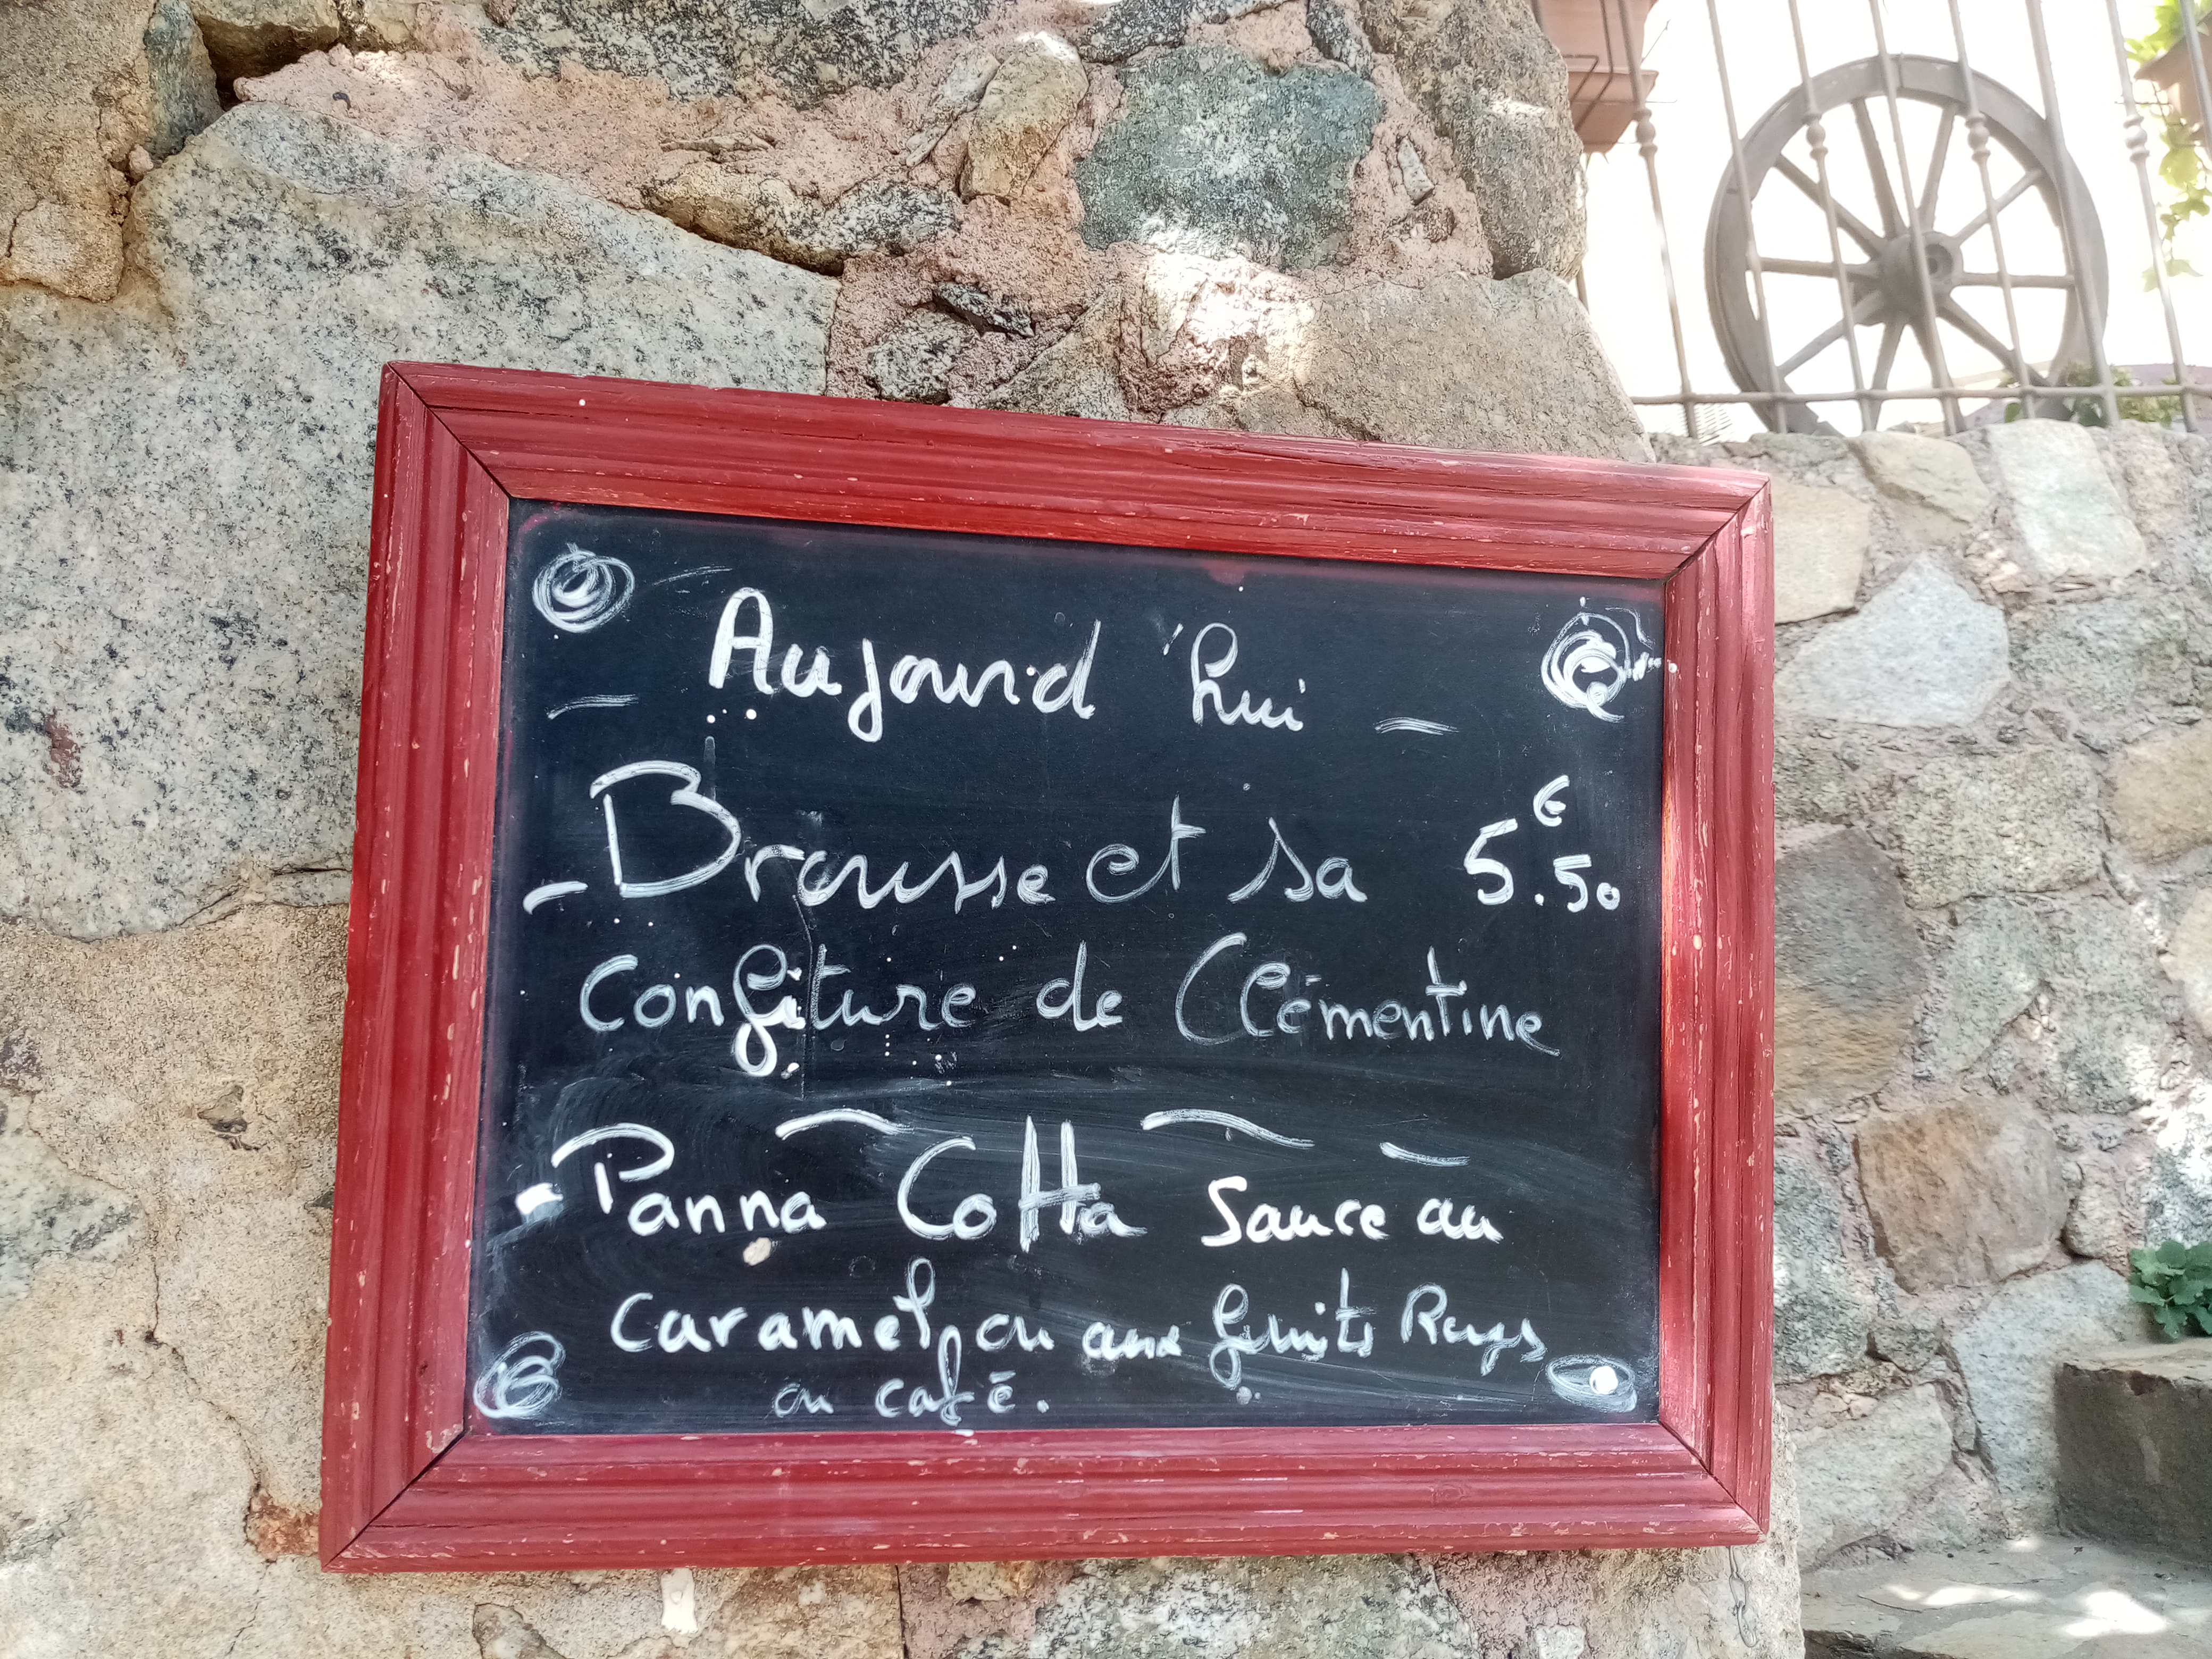 Aujourd'hui
- Brousse et sa 5.50 €
Confiture de Clémentine
- Panna Cotta Sauce au
caramel, ou aux fruits Rugs
ou café.